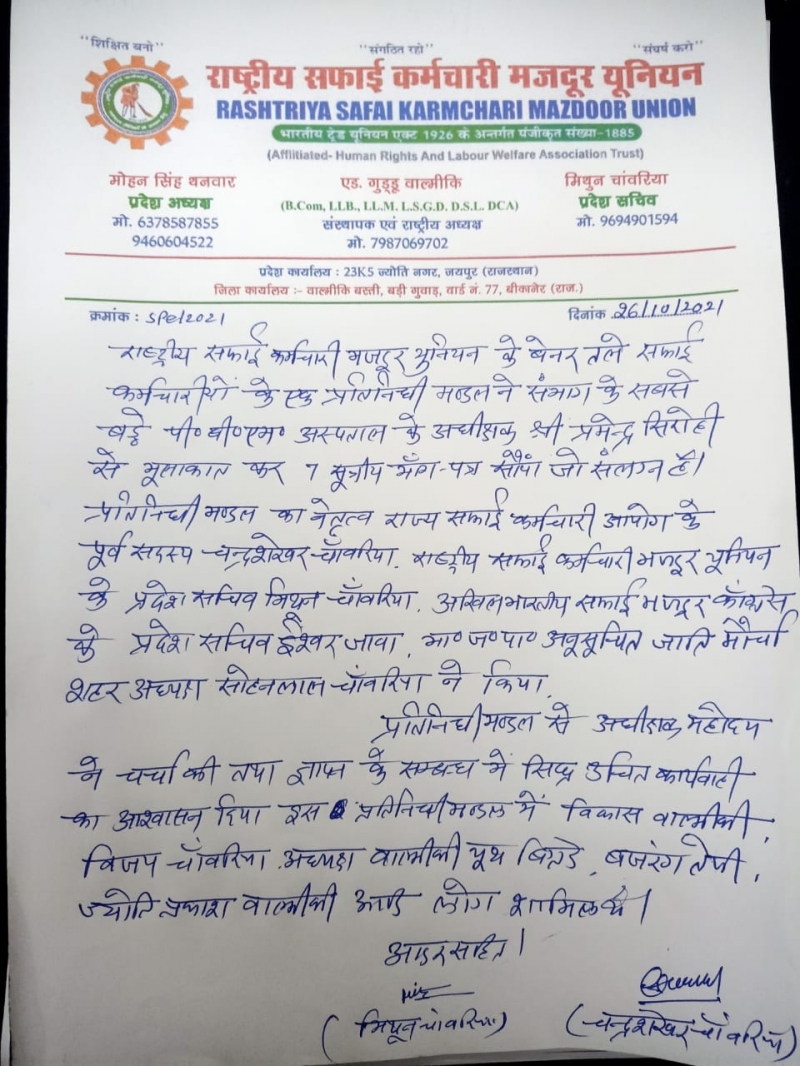 "शिक्षित बनो" "संगठित रहो" "संघर्ष करो"
राष्ट्रीय सफाई कर्मचारी मजदूर यूनियन
RASHTRIYA SAFAI KARMCHARI MAZDOOR UNION
भारतीय ट्रेड यूनियन एक्ट 1926 के अन्तर्गत पंजीकृत संख्या-1885
(Affilitiated- Human Rights And Labour Welfare Association Trust)
मोहन सिंह धनवार एड. गुड्डू वाल्मीकि मिथुन चांवरिया
प्रदेश अध्यक्ष (B.Com, LLB., LL.M. L.S.G.D. D.S.L. DCA) प्रदेश सचिव
मो. 6378587855 संस्थापक एवं राष्ट्रीय अध्यक्ष मो. 9694901594
9460604522 मो. 7987069702
प्रदेश कार्यालय : 23K5 ज्योति नगर, जयपुर (राजस्थान)
जिला कार्यालय :- वाल्मीकि बस्ती, बड़ी गुवाड़, वार्ड नं. 77, बीकानेर (राज.)
क्रमांक : Spe/2021 दिनांक 26/10/2021
राष्ट्रीय सफाई कर्मचारी मजदूर युनियन के बेनर तले सफाई
कर्मचारीयों के एक प्रतिनिधी मण्डल ने संभाग के सबसे
बड़े पी० बी० एम० अस्पताल के अधीक्षक श्री प्रमेन्द्र सिरोही
से मूलाकात कर 7 सूत्रीय माँग-पत्र सौंपा जो संलग्न है।
प्रतिनिधी मण्डल का नेतृत्व राज्य सफाई कर्मचारी आयोग के
पूर्व सदस्य चन्द्रशेखर चाँवरिया, राष्ट्रीय सफाई कर्मचारी मजदूर यूनियन
के प्रदेश सचिव मिथून चाँवरिया, अखिल भारतीय सफाई मजदूर काँग्रेस
के प्रदेश सचिव ईश्वर जावा, भा० ज० पा० अनूसूचित जाति मोर्चा
शहर अध्यक्ष सोहनलाल चाँवरिया ने किया,
प्रतिनिधी मण्डल से अधीक्षक महोदय
ने चर्चा की तथा ज्ञापन के सम्बन्ध में उचित कार्यवाही
का आश्वासन दिया इस प्रतिनिधी मण्डल में विकास वाल्मीकी,
विजय चाँवरिया, अध्यक्ष वाल्मीकी यूथ, बजरंग तेजी,
ज्योति प्रकाश वाल्मीकी आदि लोग शामिल थे।
आदर सहित।
(मिथून चांवरिया) (चन्द्रशेखर चाँवरिया)